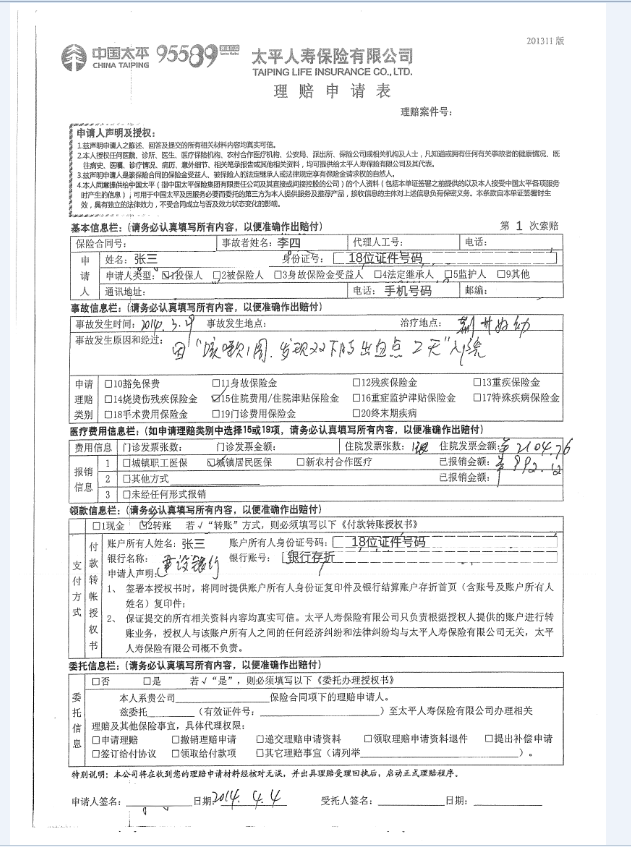 201311 版
中国太平 95589 太平人寿保险有限公司
CHINA TAIPING TAIPING LIFE INSURANCE CO., LTD.
理赔申请表
理赔案件号：
申请人声明及授权：
1.兹声明申请人之陈述、回答及提交的所有相关材料内容均真实可信。
2.本人授权任何医院、诊所、医生、医疗保险机构、农村合作医疗机构、公安局、派出所、保险公司或相关机构及人士，凡知道或拥有任何有关事故者的健康情况、既
往病史、医嘱、诊疗情况、病历、意外细节、相关笔录报告或其他相关资料，均可提供给太平人寿保险有限公司及其代表。
3.兹声明申请人是該保险合同的保险金受益人、被保险人的法定继承人或法律规定享有保险金请求权的自然人。
4.本人同意提供给中国太平（指中国太平保险集团有限责任公司及其直接或间接控股的公司）的个人资料（包括本单证签署之前提供的以及本人接受中国太平各项服务
时产生的信息），可用于中国太平及因服务必要而委托的第三方为本人提供服务及推荐产品，接收信息的主体对上述信息负有保密义务。本条款自本单证签署时生
效，具有独立的法律效力，不受合同成立与否及效力状态变化的影响。
基本信息栏：(请务必认真填写所有内容，以便准确作出赔付) 第 1 次索赔
保险合同号： 事故者姓名：李四 代理人工号： 电话：
申请人 姓名：张三 身份证号：18位证件号码
申请人类型：☑1投保人 □2被保险人 □3身故保险金受益人 □4法定继承人 □5监护人 □9其他
通讯地址： 电话：手机号码 邮编：
事故信息栏：(请务必认真填写所有内容，以便准确作出赔付)
事故发生时间：2014.3.29 事故发生地点： 治疗地点：荆州妇幼
事故发生原因和经过：因“咳嗽1周，发现双下肢出血点 2天”入院
申请理赔类别 □10豁免保费 □11身故保险金 □12残疾保险金 □13重疾保险金
□14烧烫伤残疾保险金 ☑15住院费用/住院津贴保险金 □16重症监护津贴保险金 □17特殊疾病保险金
□18手术费用保险金 □19门诊费用保险金 □20终末期疾病
医疗费用信息栏：(如申请理赔类别中选择15或19项，请务必认真填写所有内容，以便准确作出赔付)
费用信息 门诊发票张数： 门诊发票金额： 住院发票张数： 住院发票金额：2104.76
报销信息 1 □城镇职工医保 ☑城镇居民医保 □新农村合作医疗 已报销金额：992.12
2 □其他方式 已报销金额：
3 □未经任何形式报销
领款信息栏：(请务必认真填写所有内容，以便准确作出赔付)
支付方式 □1现金 ☑2转账 若√“转账”方式，则必须填写以下《付款转账授权书》
付款转账授权书 账户所有人姓名：张三 账户所有人身份证号码：18位证件号码
银行名称：建设银行 银行账号：银行存折
申请人声明：
1、 签署本授权书时，将同时提供账户所有人身份证复印件及银行结算账户存折首页（含账号及账户所有人
姓名）复印件；
2、 保证提交的所有相关资料内容均真实可信。太平人寿保险有限公司只负责根据授权人提供的账户进行转
账业务，授权人与该账户所有人之间的任何经济纠纷和法律纠纷均与太平人寿保险有限公司无关，太平
人寿保险有限公司概不负责。
委托信息栏：(请务必认真填写所有内容，以便准确作出赔付)
委托信息 □否 □是 若√“是”，则必须填写以下《委托办理授权书》
本人系贵公司 保险合同项下的理赔申请人。
兹委托 （有效证件号： ）至太平人寿保险有限公司办理相关
理赔及其他保险事宜，具体代理权限：
□申请理赔 □撤销理赔申请 □递交理赔申请资料 □领取理赔申请资料退件 □提出补偿申请
□签订给付协议 □领取给付款项 □其它理赔事宜（请列举 ）。
特别说明：本公司将在收到您的理赔申请材料经核对无误，并出具理赔受理回执后，启动正式理赔程序。
申请人签名： 日期2014.4.4 受托人签名： 日期：